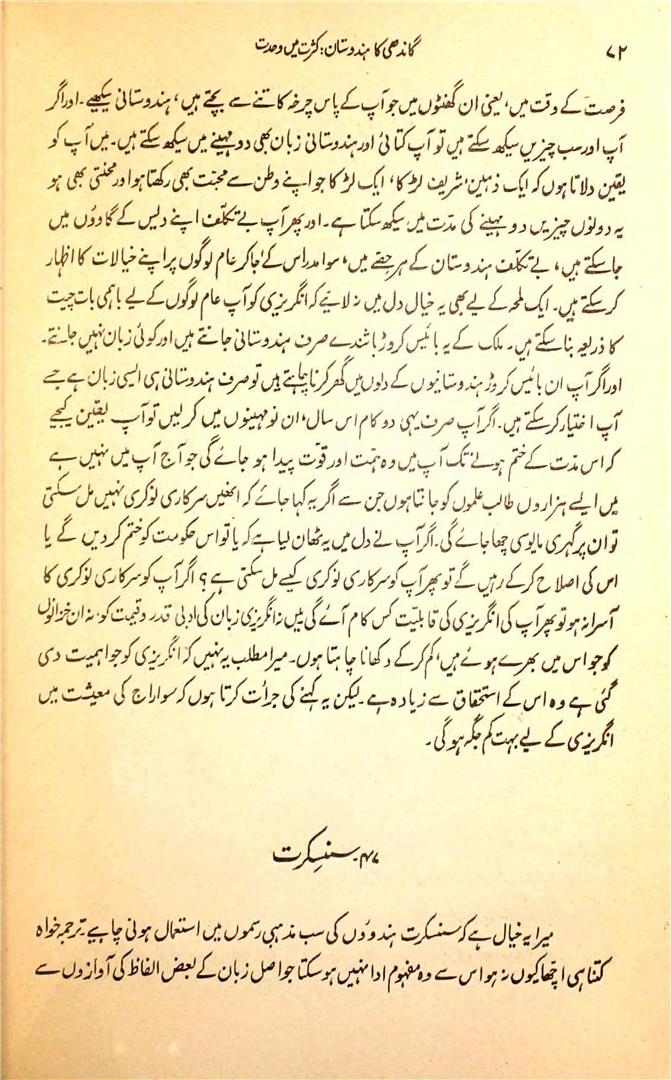 ۷۲
گاندھی کا ہندوستان: کثرت میں وحدت
فرصت کے وقت میں، یعنی ان گھنٹوں میں جو آپ کے پاس چرخہ کاتنے سے بچتے ہیں، ہندوستانی سیکھیے۔ اور اگر
آپ اور سب چیزیں سیکھ سکتے ہیں تو آپ کتائی اور ہندوستانی زبان بھی دو مہینے میں سیکھ سکتے ہیں۔ میں آپ کو
یقین دلاتا ہوں کہ ایک ذہین، شریف لڑکا، ایک لڑکا جو اپنے وطن سے محبت بھی رکھتا ہو اور محنتی بھی ہو
یہ دونوں چیزیں دو مہینے کی مدت میں سیکھ سکتا ہے۔ اور پھر آپ بے تکلف اپنے دیس کے گاووں میں
جا سکتے ہیں، بے تکلف ہندوستان کے ہر حصے میں، سوا مدراس کے، جا کر عام لوگوں پر اپنے خیالات کا اظہار
کر سکتے ہیں۔ ایک لمحہ کے لیے بھی یہ خیال دل میں نہ لائیے کہ انگریزی کو آپ عام لوگوں کے لیے باہمی بات چیت
کا ذریعہ بنا سکتے ہیں۔ ملک کے یہ بائیس کروڑ باشندے صرف ہندوستانی جانتے ہیں اور کوئی زبان نہیں جانتے۔
اور اگر آپ ان بائیس کروڑ ہندوستانیوں کے دلوں میں گھر کرنا چاہتے ہیں تو صرف ہندوستانی ہی ایسی زبان ہے جسے
آپ اختیار کر سکتے ہیں۔ اگر آپ صرف یہی دو کام اس سال، ان نو مہینوں میں کر لیں تو آپ یقین کیجیے
کہ اس مدت کے ختم ہونے تک آپ میں وہ ہمت اور قوت پیدا ہو جائے گی جو آج آپ میں نہیں ہے
میں ایسے ہزاروں طالب علموں کو جانتا ہوں جن سے اگر یہ کہا جائے کہ انھیں سرکاری نوکری نہیں مل سکتی
تو ان پر گہری مایوسی چھا جائے گی۔ اگر آپ نے دل میں یہ ٹھان لیا ہے کہ یا تو اس حکومت کو ختم کر دیں گے یا
اس کی اصلاح کر کے رہیں گے تو پھر آپ کو سرکاری نوکری کیسے مل سکتی ہے؟ اگر آپ کو سرکاری نوکری کا
آسرا نہ ہو تو پھر آپ کی انگریزی کی قابلیت کس کام آئے گی میں نہ انگریزی زبان کی ادبی قدر و قیمت کو، نہ ان خزانوں
کو جو اس میں بھرے ہوئے ہیں، کم کر کے دکھانا چاہتا ہوں۔ میرا مطلب یہ نہیں کہ انگریزی کو جو اہمیت دی
گئی ہے وہ اس کے استحقاق سے زیادہ ہے۔ لیکن یہ کہنے کی جرأت کرتا ہوں کہ سوا راج کی معیشت میں
انگریزی کے لیے بہت کم جگہ ہو گی۔
۴۷۔ سنسکرت
میرا یہ خیال ہے کہ سنسکرت ہندوؤں کی سب مذہبی رسموں میں استعمال ہونی چاہیے۔ ترجمہ خواہ
کتنا ہی اچھا کیوں نہ ہو اس سے وہ مفہوم ادا نہیں ہو سکتا جو اصل زبان کے بعض الفاظ کی آوازوں سے